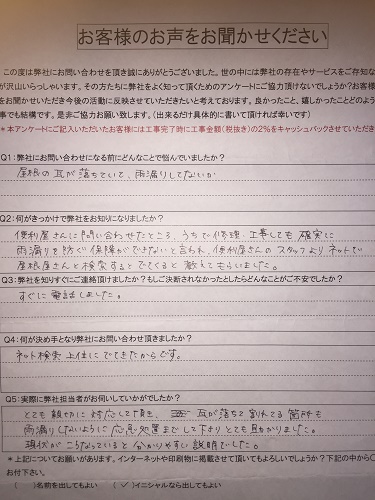 お客様のお声をお聞かせください
この度は弊社にお問い合わせを頂き誠にありがとうございました。世の中には弊社の存在やサービスをご存知な
が沢山いらっしゃいます。その方たちに弊社をよく知って頂くためのアンケートにご協力頂けないでしょうか?お客様
をお聞かせいただき今後の活動に反映させていただきたいと考えております。良かったこと、嬉しかったことどのよう
事でも結構です。是非ご協力お願い致します。(出来るだけ具体的に書いて頂ければ幸いです)
*本アンケートにご記入いただいたお客様には工事完了時に工事金額(税抜き)の2%をキャッシュバックさせていただき
Q1:弊社にお問い合わせになる前にどんなことで悩んでいましたか?
屋根の耳が落ちていて、雨漏りしてないか
Q2:何がきっかけで弊社をお知りになりましたか?
便利屋さんに問い合わせたところ、うちで修理・工事しても確実に
雨漏りを防ぐ保障ができないと言われ、便利屋さんのスタッフよりネットで
屋根屋さんと検索するとでてくると教えてもらいました。
Q3:弊社を知りすぐにご連絡頂けましたか?もしご決断されなかったとしたらどんなことがご不安でしたか?
すぐに電話しました。
Q4:何が決め手となり弊社にお問い合わせ頂きましたか?
ネット検索上位にでてきたからです。
Q5:実際に弊社担当者がお伺いしていかがでしたか?
とても親切に対応して頂き、耳が落ちて割れてる箇所も
雨漏りしないように応急処置までして下さりとても助かりました。
現状がこうなっていると分かりやすい説明でした。
*上記についてお願いがあります。インターネットや印刷物に掲載させて頂いてもよろしいでしょうか?下記の中から〇
お付下さい。
( )名前を出してもよい (✓)イニシャルなら出してもよい